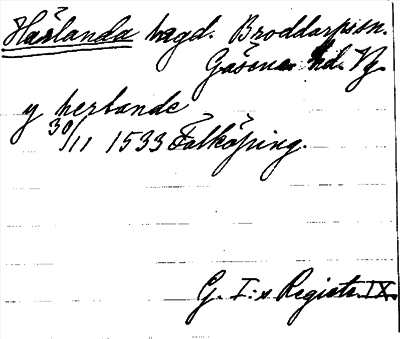 Härlanda hagd. Broddarpssn.
Gäsene hd. Vg.
y herlande
30/11 1533 Falköping.
G. I:s Registr. IX.